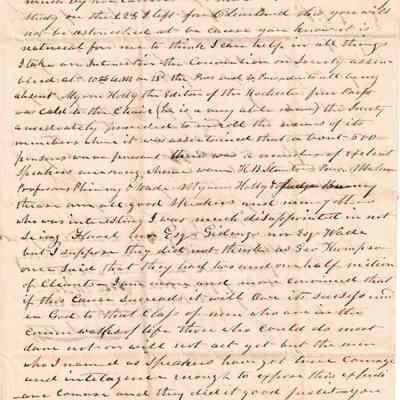 study on the 23 I left for Cleaveland this you will
not be astonished at be cause you know it is
natural for me to think I can help in all things
I take an Interest in the Convention on Society assem
bled at 10 A.M. on the Pres and Vice Presidents all being
absent Myron Holly the Editor of the Rochester free Press
was cald to the Chair (he is a very able man) the Society
amediately proceded to inroll the names of its
members when it was assertained that a bout 500
persons ware present there was a number of exelent
Speakers amoung them ware H B Stanton
Profesors and Wade Myron Holly &
these are all good speakers and many others
who was interesting I was much disappointed in not
seing nor Esq Gidings nor Esq Wade
but I suppose they did not think as Geo Thompson
once said that they had two and one half milion
of Clients I am more and more convinced that
if this Cause succeeds it will owe its success under
to God to that Class of men who are in the
common walks of life those who could do most
dare not or will not act yet but the men
who I named as speakers have got true Courage
and inteligence enough to expose this
and they did it good justice you